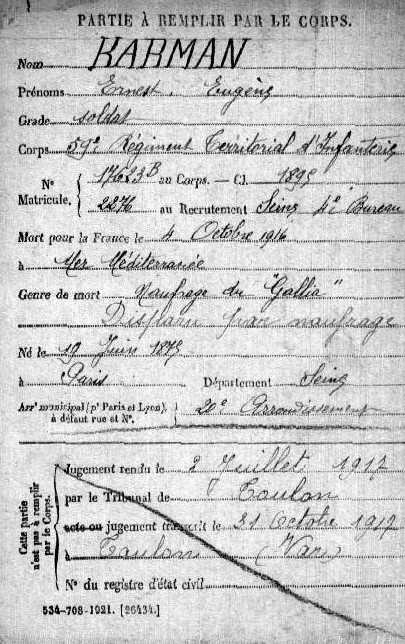 PARTIE À REMPLIR PAR LE CORPS.
Nom KARMAN
Prénoms Ernest, Eugène
Grade soldat
Corps 59e Régiment Territorial d'Infanterie
N° Matricule. { 17623B au Corps. — Cl. 1899
2276 au Recrutement Seine 4e Bureau
Mort pour la France le 4 Octobre 1916
à Mer Méditerranée
Genre de mort Naufrage du "Gallia"
Disparu par naufrage
Né le 19 Juin 1879
à Paris Département Seine
Arrt municipal (pr Paris et Lyon), à défaut rue et N°. { 20e Arrondissement
Cette partie n'est pas à remplir par le Corps.
Jugement rendu le 2 Juillet 1917
par le Tribunal de Toulon
acte ou jugement transcrit le 31 Octobre 1917
à Toulon (Var)
N° du registre d'état civil
534-708-1921. [26434.]